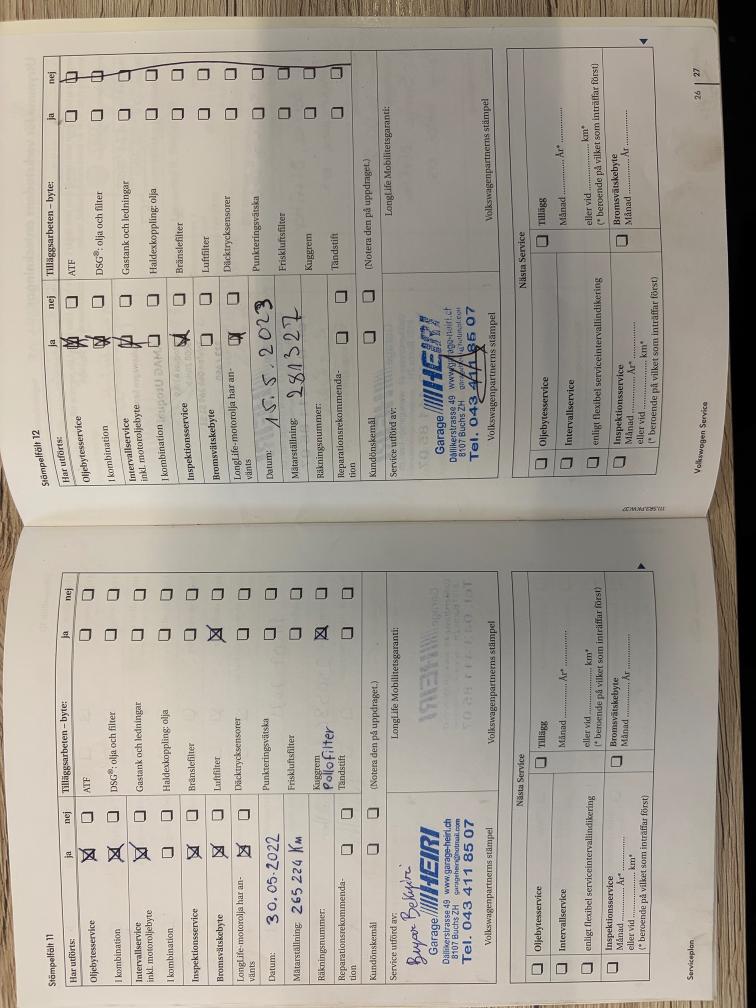 Stämpelfält 11
Har utförts:
ja
nej
Tilläggsarbeten – byte:
ja
nej
Oljebytesservice
ATF
I kombination
DSG®: olja och filter
Intervallservice
inkl. motoroljebyte
Gastank och ledningar
I kombination
Haldexkoppling: olja
Inspektionsservice
Bränslefilter
Bromsvätskebyte
Luftfilter
LongLife-motorolja har an-
vänts
Däcktrycksensorer
Datum: 30.05.2022
Punkteringsvätska
Mätarställning: 265 224 KM
Friskluftsfilter
Räkningsnummer:
Kuggrem
Pollofilter
Reparationsrekommenda-
tion
Tändstift
Kundönskemål
(Notera den på uppdraget.)
Service utförd av:
LongLife Mobilitetsgaranti:
Garage HEIRI
Dällikerstrasse 49 www.garage-heiri.ch
8107 Buchs ZH garageheiri@hotmail.com
Tel. 043 411 85 07
Volkswagenpartnerns stämpel
Volkswagenpartnerns stämpel
Nästa Service
Oljebytesservice
Tillägg
Intervallservice
Månad ............ År* ............
enligt flexibel serviceintervallindikering
eller vid ............ km*
(* beroende på vilket som inträffar först)
Inspektionsservice
Månad ............ År* ............
eller vid ............ km*
(* beroende på vilket som inträffar först)
Bromsvätskebyte
Månad ............ År ............
Serviceplan
Stämpelfält 12
Har utförts:
ja
nej
Tilläggsarbeten – byte:
ja
nej
Oljebytesservice
ATF
I kombination
DSG®: olja och filter
Intervallservice
inkl. motoroljebyte
Gastank och ledningar
I kombination
Haldexkoppling: olja
Inspektionsservice
Bränslefilter
Bromsvätskebyte
Luftfilter
LongLife-motorolja har an-
vänts
Däcktrycksensorer
Datum: 15.5.2023
Punkteringsvätska
Mätarställning: 281327
Friskluftsfilter
Räkningsnummer:
Kuggrem
Reparationsrekommenda-
tion
Tändstift
Kundönskemål
(Notera den på uppdraget.)
Service utförd av:
LongLife Mobilitetsgaranti:
Garage HEIRI
Dällikerstrasse 49 www.garage-heiri.ch
8107 Buchs ZH
Tel. 043 411 85 07
Volkswagenpartnerns stämpel
Volkswagenpartnerns stämpel
Nästa Service
Oljebytesservice
Tillägg
Intervallservice
Månad ............ År* ............
enligt flexibel serviceintervallindikering
eller vid ............ km*
(* beroende på vilket som inträffar först)
Inspektionsservice
Månad ............ År* ............
eller vid ............ km*
(* beroende på vilket som inträffar först)
Bromsvätskebyte
Månad ............ År ............
Volkswagen Service
26 | 27